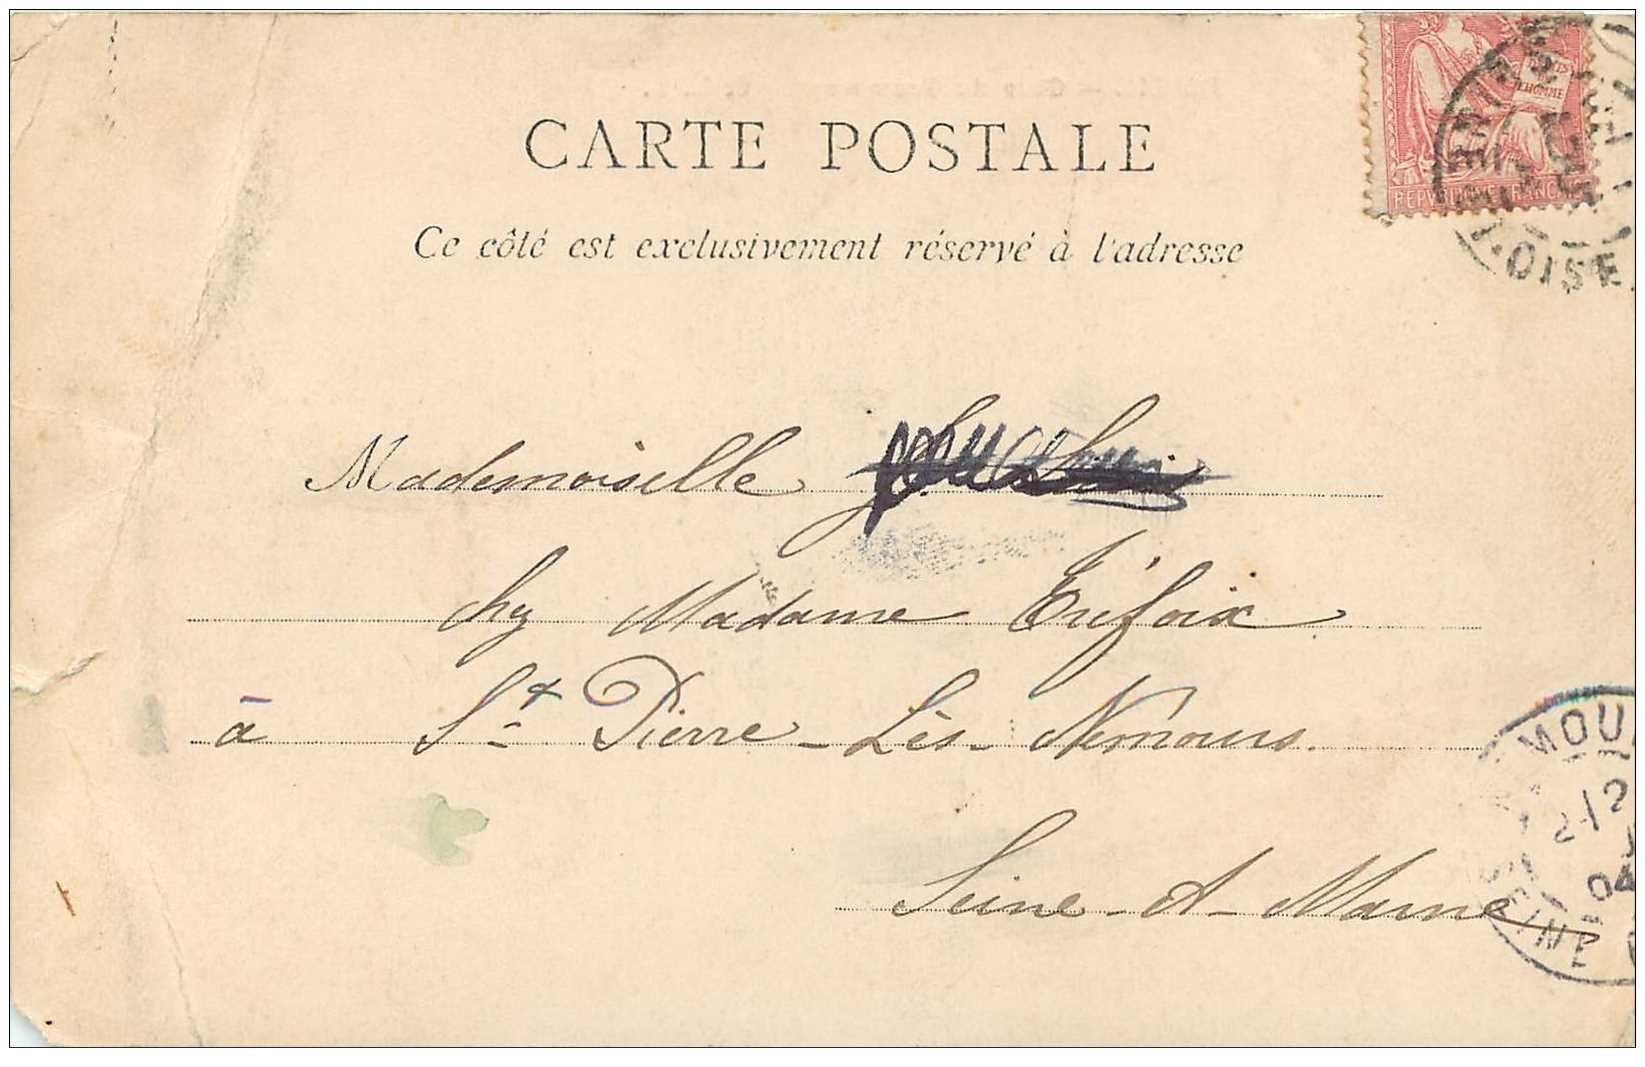 CARTE POSTALE
Ce côté est exclusivement réservé à l'adresse
L'HOMME
REPUBLIQUE FRANCAISE
OISE
Mademoiselle
chez Madame Trifoix
à St Pierre-Lès-Nemours.
Seine-A-Marne
MOU
04
SEINE